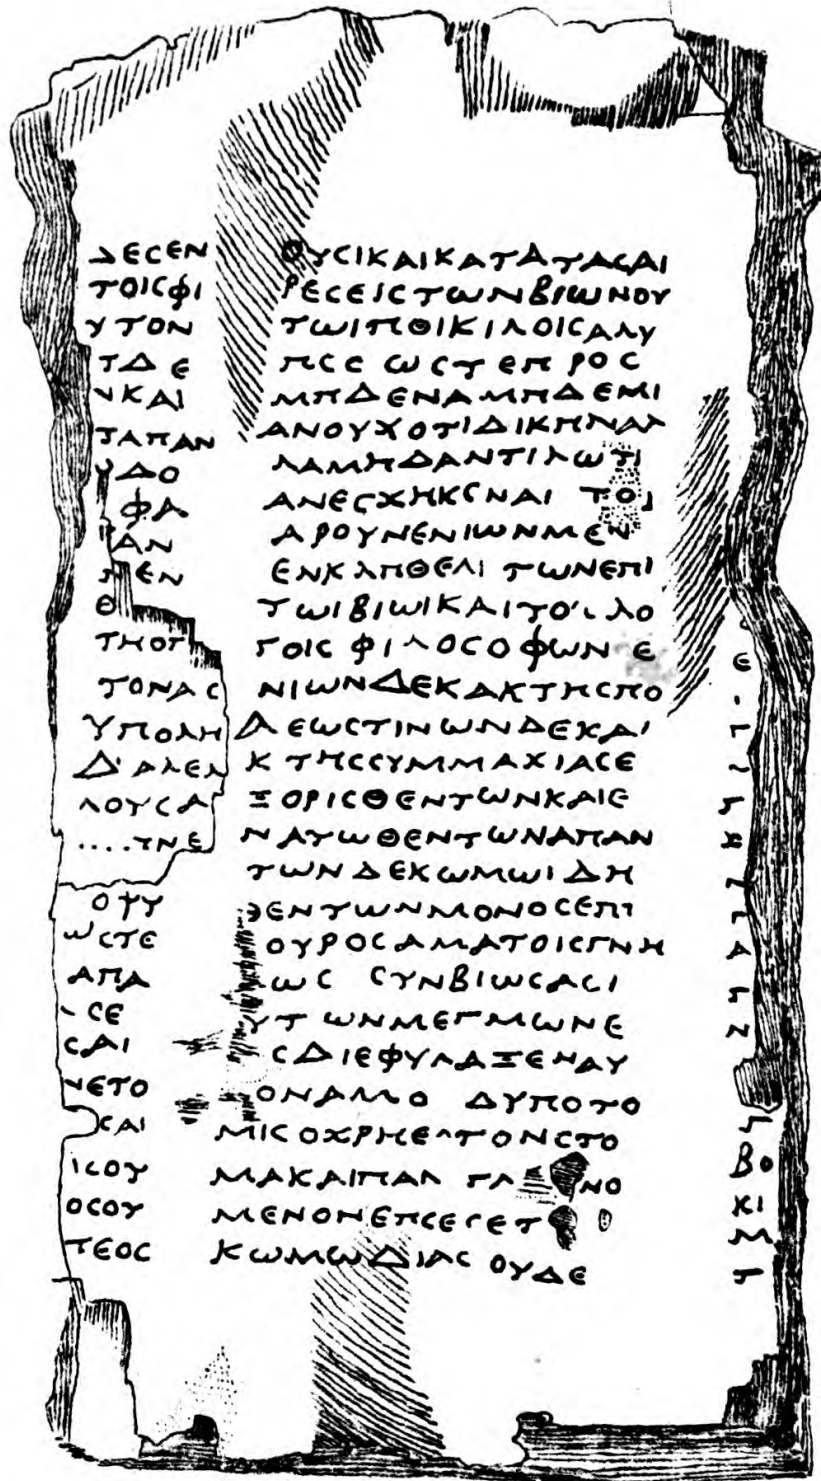 ΔΕϹΕΝ
ΤΟΙϹΦΙ
ΥΤΟΝ
ΤΔΕ
ΚΑΙ
ΤΑΠΑΝ
ΥΔΟ
ΦΑ
ΑΝ
ΕΝ
Θ
ΤΗΟΓ
ΤΟΝΑϹ
ΥΠΟΛΗ
ΔΙΑΛΕΛ
ΛΟΥϹΑ
....ΤΝΕ
ΟΨΥ
ΩϹΤΕ
ΑΠΑ
ϹΕ
ϹΑΙ
ΝΕΤΟ
ϹΑΙ
ΙϹΟΥ
ΟϹΟΥ
ΤΕΟϹ
ΘΥϹΙΚΑΙΚΑΤΑΤΑϹΑΙ
ΡΕϹΕΙϹΤΩΝΒΙΩΝΟΥ
ΤΩΙΠΘΙΚΙΛΟΙϹΑΛΥ
ΠϹϹ ΩϹΤΕΠΡΟϹ
ΜΠΔΕΝΑΜΠΔΕΜΙ
ΑΝΟΥΧΟΤΙΔΙΚΗΝΑΛ
ΛΑΜΗΔΑΝΤΙΛΩΤΙ
ΑΝΕϹΧΗΚϹΝΑΙ ΤΟΙ
ΑΡΟΥΝΕΝΙΩΝΜΕΝ
ΕΝΚΛΠΘΕΛΙ ΤΩΝΕΠΙ
ΤΩΙΒΙΩΙΚΑΙΤΟΙ ΛΟ
ΓΟΙϹ ΦΙΛΟϹΟΦΩΝ Ε
ΝΙΩΝΔΕΚΑΚΤΗϹΠΟ
ΛΕΩϹΤΙΝΩΝΔΕΚΑΙ
ΚΤΗϹϹΥΜΜΑΧΙΑϹΕ
ΞΟΡΙϹΘΕΝΤΩΝΚΑΙΕ
ΝΑΤΩΘΕΝΤΩΝΑΠΑΝ
ΤΩΝΔΕΚΩΜΩΙΔΗ
ΘΕΝΤΩΝΜΟΝΟϹΕΠΙ
ΟΥΡΟϹΑΜΑΤΟΙϹΓΝΗ
ΩϹ ϹΥΝΒΙΩϹΑϹΙ
ΥΤΩΝΜΕΓΜΩΝΕ
ϹΔΙΕΦΥΛΑΞΕΝΑΥ
ΟΝΑΜΟ ΔΥΠΟΤΟ
ΜΙϹΟΧΡΗΕΛΤΟΝϹΤΟ
ΜΑΚΑΙΠΑΛ ΓΛ ΝΟ
ΜΕΝΟΝΕΠϹΕΓΕΤ
ΚΩΜΩΔΙΑϹ ΟΥΔΕ
Ε
Γ
Η
Γ
Λ
Γ
Ν
Τ
ΒΟ
ΚΙ
Μ
Τ